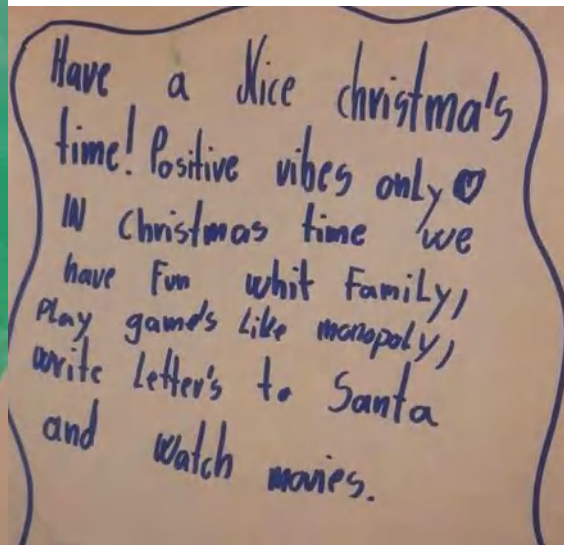 Have a Nice christma's
time! Positive vibes only ♡
IN Christmas time we
have Fun whit Family,
Play game's Like monopoly,
write Letter's to Santa
and watch movies.